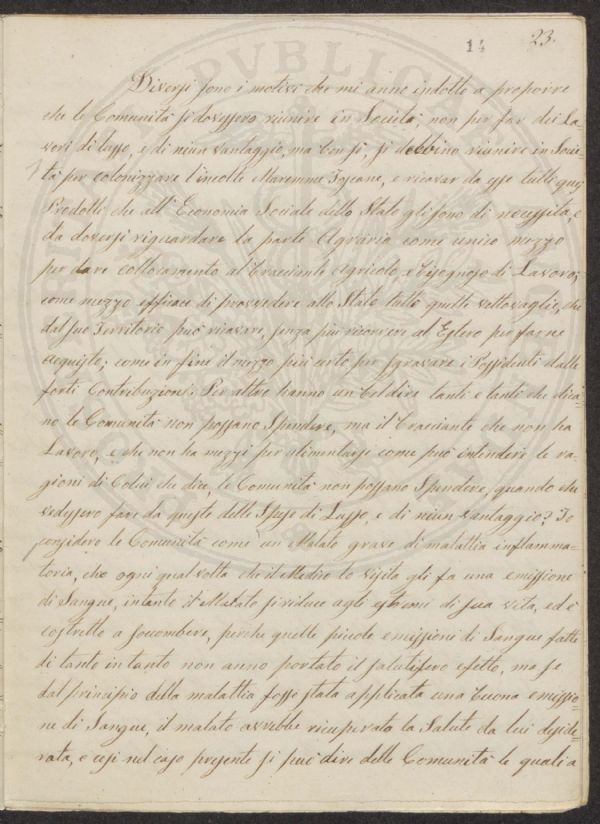 14 23.
Diversi sono i motivi che mi anno indotto a proporre
che le Comunità si dovessero riunire in Società; non per far dei La-
vori di lusso, e di niun vantaggio, ma ben sì, si debbino riunire in Socie-
tà per colonizzare l'incolte Maremme Toscane, e ricavar da esse tutti quei
Prodotti, che all'Economia Sociale dello Stato gli sono di necessità, e
da doversi riguardare la parte Agraria come unico mezzo
per dare collocamento al Bracciante Agricolo, e bisognoso di Lavoro;
come mezzo efficace di provvedere allo Stato tutte quelle vettovaglie, che
dal suo Territorio può ricavare, senza più ricorrere al Estero per farne
acquisto; come in fine il mezzo più certo per sgravare i Possidenti dalle
forti Contribuzioni. Per altro hanno un bel dire tanti e tanti che dica-
no le Comunità non possano Spendere, ma il Bracciante che non ha
Lavoro, e che non ha mezzi per alimentarsi come può intendere le ra-
gioni di Colui che dice, le Comunità non possano Spendere, quando che
vedessero fare da queste delle Spese di Lusso, e di niun vantaggio? Io
considero le Comunità come un Malato grave di malattia inflamma-
toria, che ogni qual volta che il Medico lo visita gli fa una emissione
di Sangue, intanto il Malato si riduce agli estremi di sua vita, ed è
costretto a soccombere, perche quelle piccole emissioni di Sangue fatte
di tanto in tanto non anno portato il salutifero efetto, ma se
dal principio della malattia fosse stata applicata una buona emissio-
ne di Sangue, il malato avrebbe ricuperato la Salute da lui deside-
rata, e così nel caso presente si può dire delle Comunità le quali a